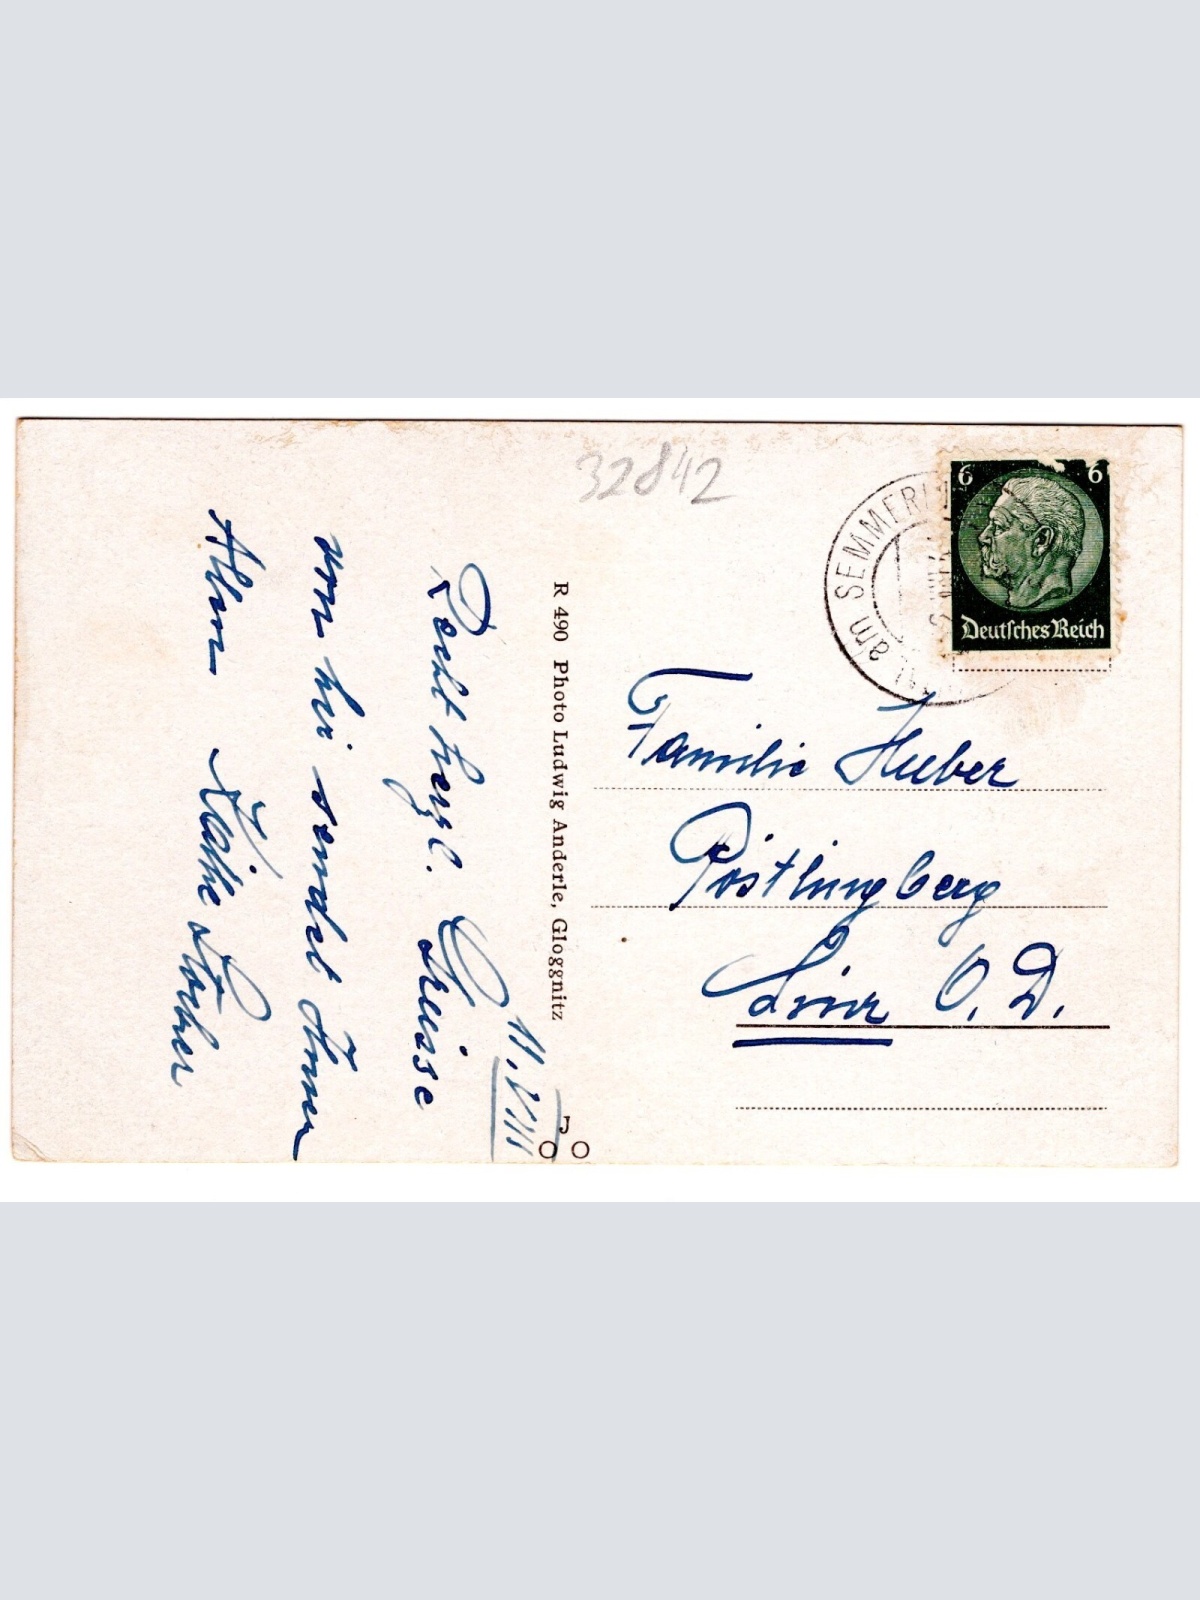 32842
6 6
Deutsches Reich
am SEMMERI
Familie Huber
Pöstlingberg
Linz O. D.
R 490 Photo Ludwig Anderle, Gloggnitz
J
11. VIII
Recht herzl. Grüsse
von hier sendet Ihnen
Allen Käthe